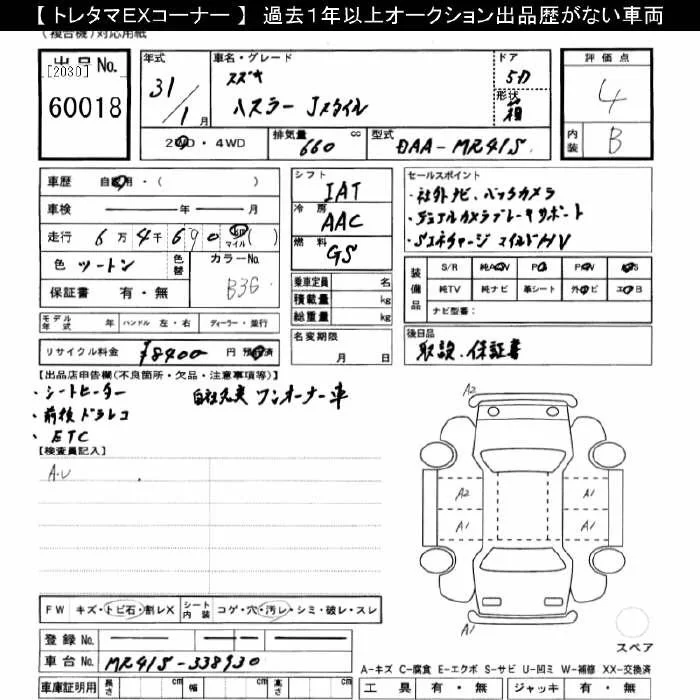 【 トレタマEXコーナー 】 過去1年以上オークション出品歴がない車両
(複合機)対応用紙
出品No.
[2030]
60018
年式
31/1月
車名・グレード
スズキ
ハスラー Jスタイル
ドア
5D
形状
箱
評価点
4
内装
B
2WD・4WD
排気量
660
cc
型式
DAA-MR41S
車歴
自家用・( )
車検
年 月
走行
6万4千690
km
マイル
( )
色
ツートン
色替
カラーNo.
B3G
保証書 有・無
シフト
IAT
冷房
AAC
燃料
GS
乗車定員 名
積載量 kg
総重量 kg
セールスポイント
・社外ナビ、バックカメラ
・デュアルカメラブレーキサポート
・Sエネチャージ マイルドHV
装備品
S/R 純AW PS PW
純TV 純ナビ 革シート 外ナビ エアB
ナビ型番:
モデル年式 年 ハンドル 左・右 ディーラー・並行
リサイクル料金 ¥8400 円 預託済
名変期限
月 日
後日品
取説、保証書
【出品店申告欄(不良箇所・欠品・注意事項等)】
・シートヒーター
自社名変 ワンオーナー車
・前後ドラレコ
・ETC
【検査員記入】
A-U
A2
A2 A1
A1 A1
A1
FW キズ・トビ石・割レX
シート内装 コゲ・穴・汚レ・シミ・破レ・スレ
登録No.
車台No. MR41S-338930
車庫証明用 長さ cm 幅 cm 高さ cm
スペア
A-キズ C-腐食 E-エクボ S-サビ U-凹ミ W-補修 XX-交換済
工具 有・無 ジャッキ 有・無